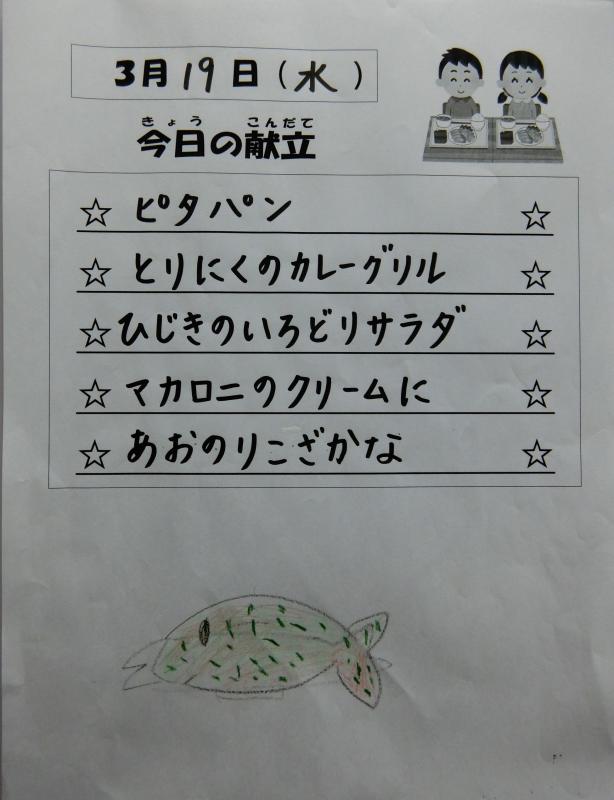 3月19日(水)
きょう こんだて
今日の献立
☆ ピタパン ☆
☆ とりにくのカレーグリル ☆
☆ ひじきのいろどりサラダ ☆
☆ マカロニのクリームに ☆
☆ あおのりこざかな ☆